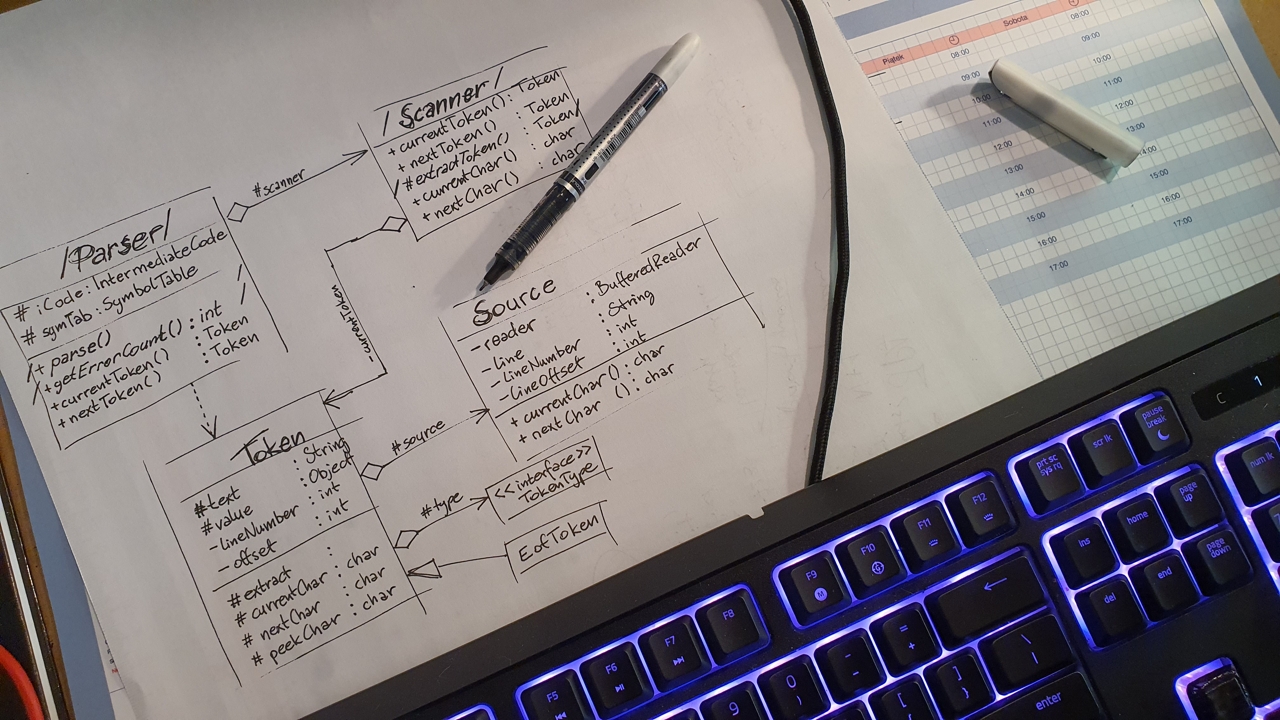 /Scanner/
+currentToken(): Token
+nextToken() : Token
/#extractToken() Token/
+currentChar() : char
+nextChar() : char
#scanner
/Parser/
# iCode: IntermediateCode
# symTab: SymbolTable
/+ parse() /
/+getErrorCount(): int /
+currentToken() : Token
+nextToken() : Token
currentToken
Source
-reader : BufferedReader
-line : String
-lineNumber : int
-lineOffset : int
+ currentChar(): char
+ nextChar (): char
Token
#text : String
#value : Object
-lineNumber : int
-offset : int
#extract :
# currentChar : char
# nextChar : char
# peekChar : char
#source
#type
<<interface>>
TokenType
EofToken
Piątek
Sobota
08:00
09:00
10:00
11:00
12:00
13:00
14:00
15:00
16:00
17:00
08:00
09:00
10:00
11:00
12:00
13:00
14:00
15:00
16:00
17:00
C 1
pause
break
scr lk
prt sc
sys rq
num lk
F12
F11
F10
F9
M
F8
F7
F6
F5
page
up
home
ins
page
down
end
del
←
=
+
-
_
0
)
9
\
|
]
}
[
{
enter